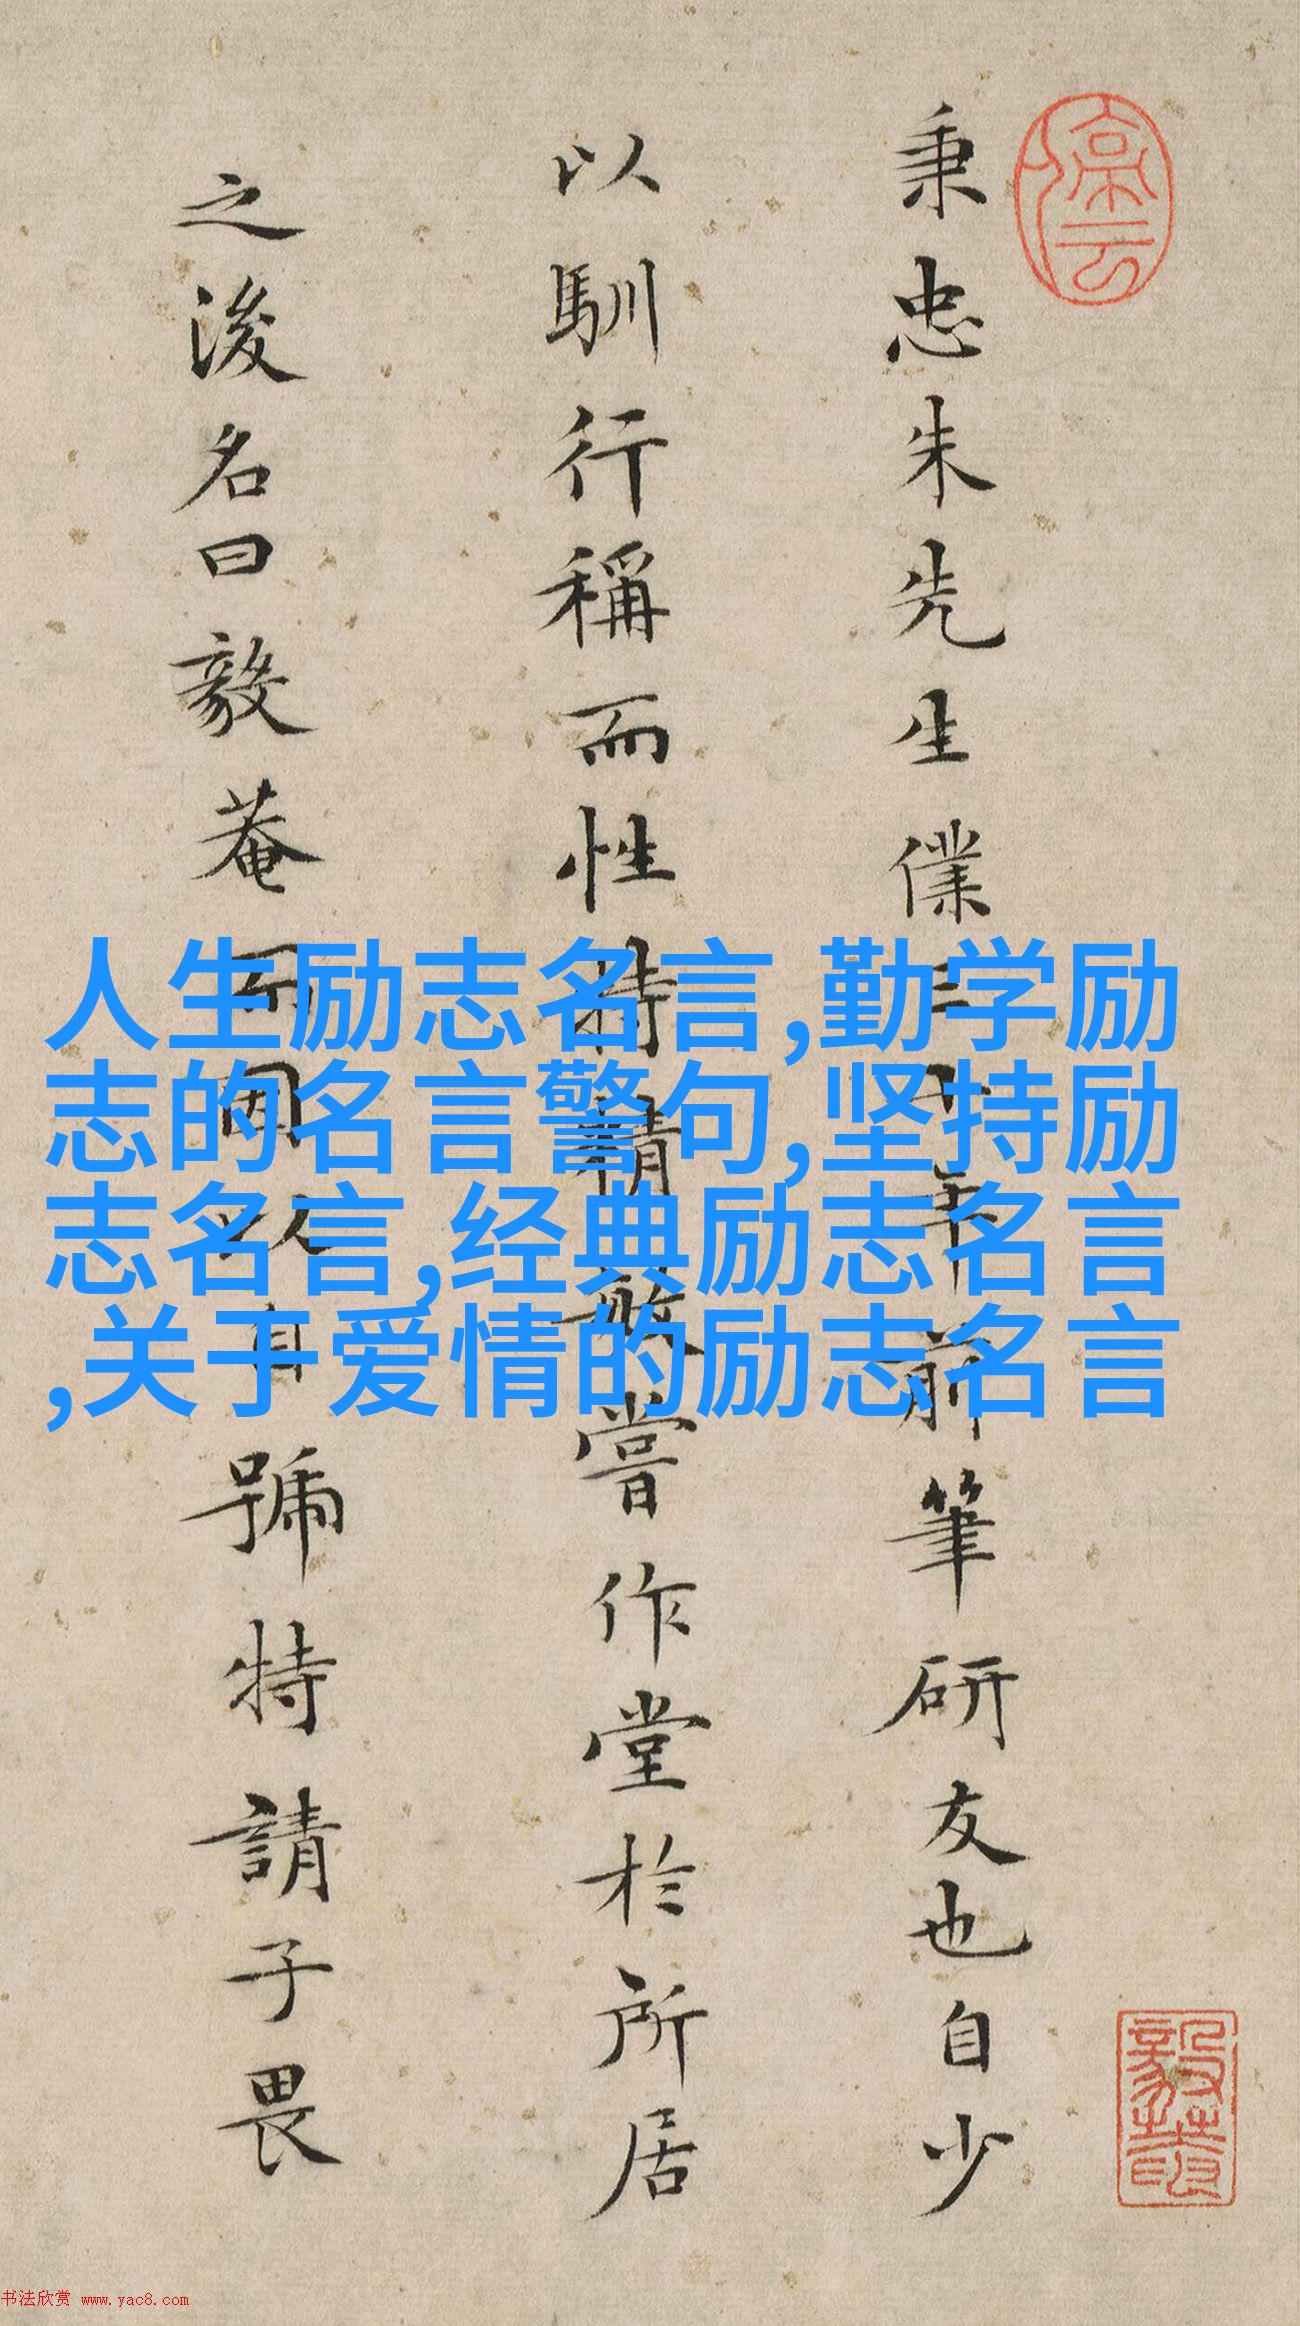 秉忠朱先生僕三十年前筆研友也自少
以馴行稱而性特精敏嘗作堂於所居
之後名曰毅菴而因以自號特請子畏
人生励志名言,勤学励
志的名言警句,坚持励
志名言,经典励志名言
,关于爱情的励志名言
书法欣赏 www.yac8.com